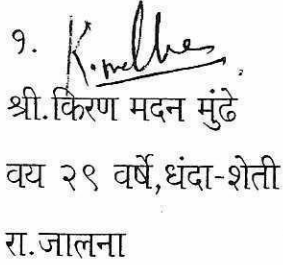 १.
श्री.किरण मदन मुंढे
वय २९ वर्षे,धंदा-शेती
रा.जालना